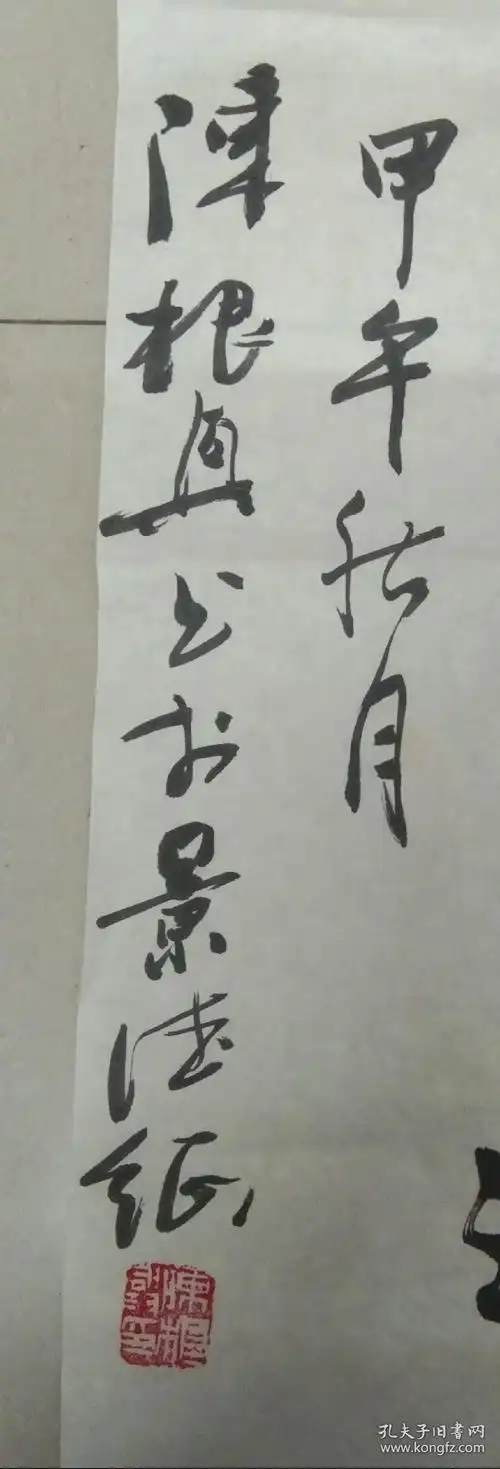 甲午秋月
陳根於景德鎮
孔夫子旧书网
www.kongfz.com